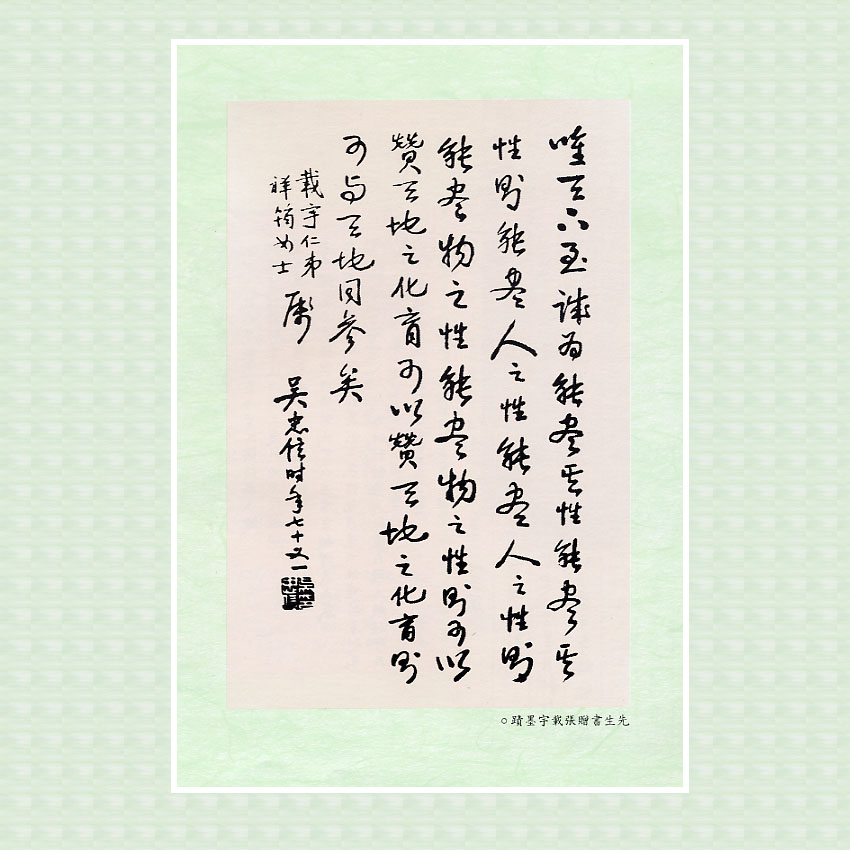 唯天下至誠為能盡其性能盡其
性則能盡人之性能盡人之性則
能盡物之性能盡物之性則可以
贊天地之化育可以贊天地之化育則
可與天地同參矣
載宇仁弟
祥筠女士
屬
吳忠信时年七十又一
先生書贈張載宇墨蹟。